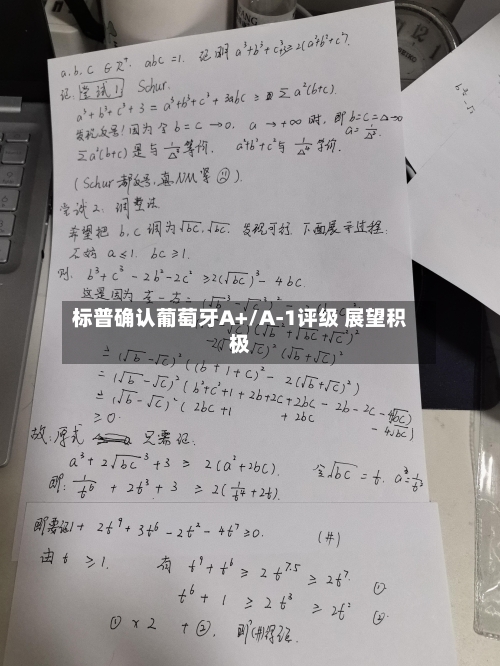 a, b, c ∈ R⁺. abc = 1. 证明 a³+b³+c³+3 ≥ 2(a²+b²+c²).
证: 尝试1 Schur.
a³+b³+c³+3 = a³+b³+c³+3abc ≥ Σ a²(b+c).
发现反号! 因为令 b=c→0, a→+∞ 时, 即 b=c=△→0
a=1/△².
Σa²(b+c) 是与 1/△³ 等价, a²+b²+c² 与 1/△⁴ 等价.
(Schur 都反号, 真NM紧).
尝试2: 调整法.
希望把 b, c 调为 √bc, √bc. 发现可行. 下面展示过程:
不妨 a ≤ 1. bc ≥ 1.
则 b³+c³-2b²-2c² ≥ 2(√bc)³-4bc.
这是因为 左-右=
标普确认葡萄牙A+/A-1评级 展望积极
-2(√b-√c)²(√b+√c)²
= (√b-√c)²((b+1+c)²-2(√b+√c)²)
= (√b-√c)²(b²+c²+1+2b+2c+2bc-2b-2c-4√bc)
= (√b-√c)²(2bc+1+2bc-4√bc)
≥ 0.
故: 原式 只需证:
a³+2√bc³+3 ≥ 2(a²+2bc). 令√bc=t. a=1/t²
即: 1/t⁶+2t³+3 ≥ 2(1/t⁴+2t²).
即要证 1+2t⁹+3t⁶-2t²-4t⁷≥0. (#)
由 t ≥ 1. 有 t⁹+t⁶ ≥ 2t^7.5 ≥ 2t⁷ ①
t⁶+1 ≥ 2t³ ≥ 2t² ②
①×2+②, 即(#)得证.